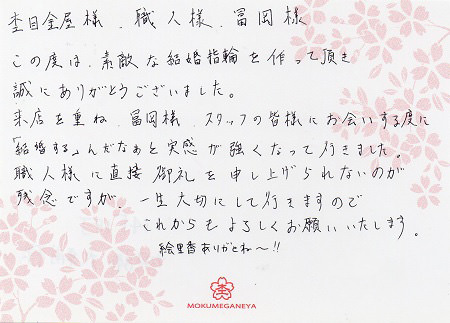 杢目金屋様、職人様、冨岡様
この度は、素敵な結婚指輪を作って頂き
誠にありがとうございました。
来店を重ね、冨岡様、スタッフの皆様にお会いする度に
「結婚する」んだなぁと実感が強くなって行きました。
職人様に直接御礼を申し上げられないのが
残念ですが、一生大切にして行きますので
これからもよろしくお願いいたします。
絵里香ありがとね〜!!
杢
MOKUMEGANEYA